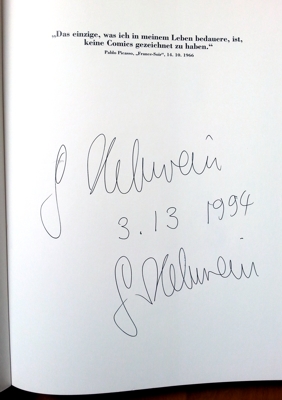 „Das einzige, was ich in meinem Leben bedauere, ist,
keine Comics gezeichnet zu haben.“
Pablo Picasso, „France-Soir“, 14. 10. 1966
G Helnwein
3.13 1994
G Helnwein